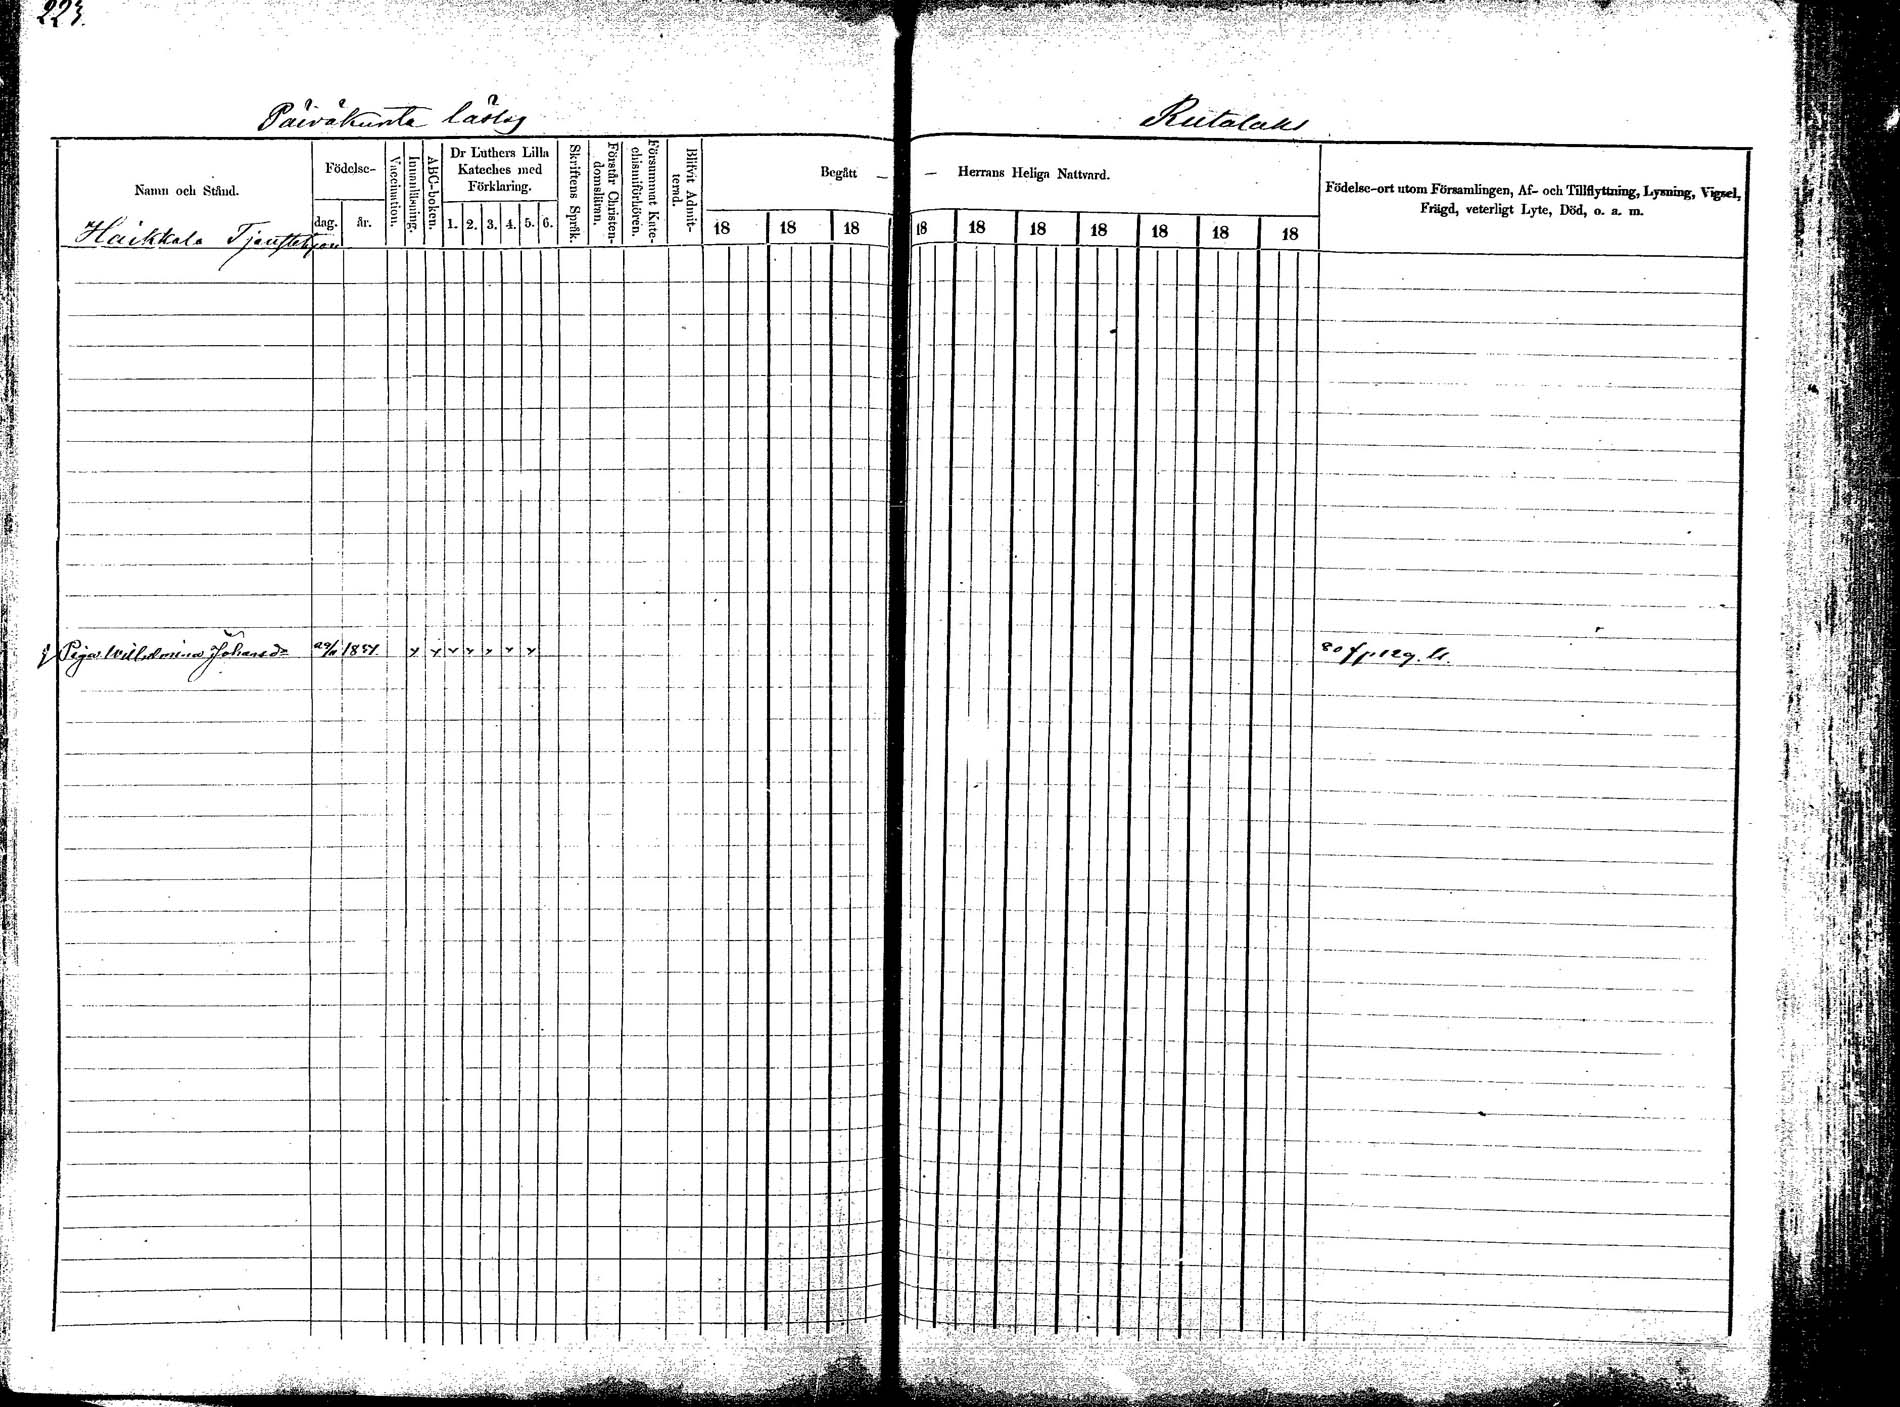 223.
Päiväkunta läslag Rutalaks
Namn och Stånd.
Födelse-
dag. år.
Vaccination.
Innanläsning.
ABC-boken.
Dr Luthers Lilla
Kateches med
Förklaring.
1. 2. 3. 4. 5. 6.
Skriftens Språk.
Förstår Christen-
domsläran.
Försummat Kate-
chismiförhören.
Blifvit Admit-
terad.
Begått — — Herrans Heliga Nattvard.
18 18 18 18 18 18 18 18 18 18
Födelse-ort utom Församlingen, Af- och Tillflyttning, Lysning, Vigsel,
Frägd, veterligt Lyte, Död, o. a. m.
Haikkala Tjenstehjon
Piga Wilhelmina Johansd:r 1851 80 fr p 129.